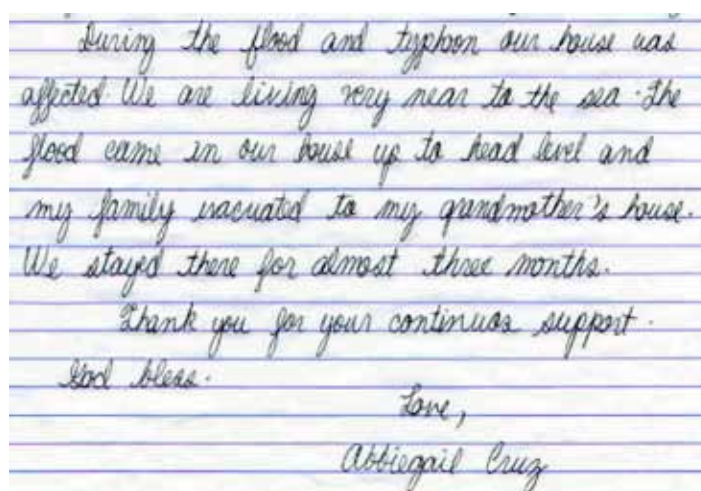 During the flood and typhoon our house was
affected. We are living very near to the sea. The
flood came in our house up to head level and
my family evacuated to my grandmother's house.
We stayed there for almost three months.
Thank you for your continuos support.
God bless.
Love,
Abbiegail Cruz